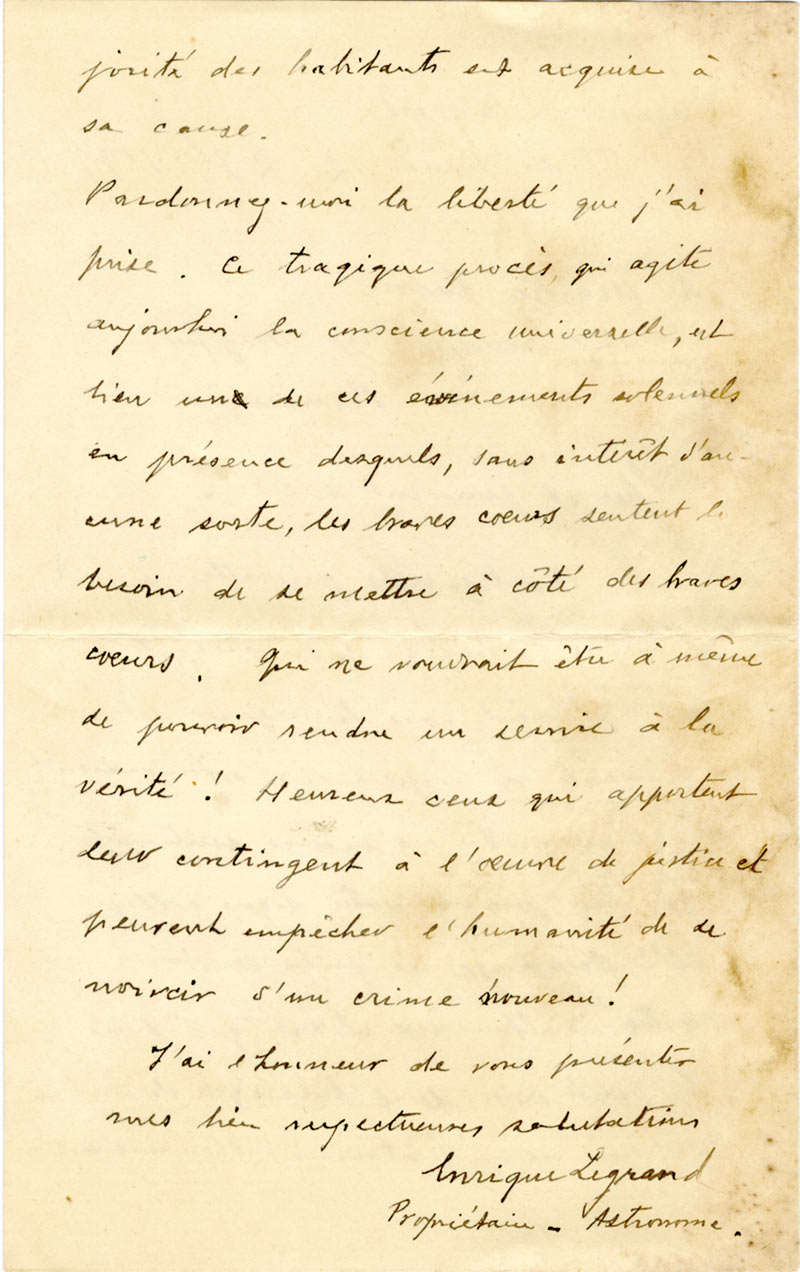 jorité des habitants est acquise à
sa cause.
Pardonnez-moi la liberté que j'ai
prise. Ce tragique procès, qui agite
aujourd'hui la conscience universelle, est
bien un de ces événements solennels
en présence desquels, sans intérêt d'au-
cune sorte, les braves coeurs sentent le
besoin de se mettre à côté des braves
coeurs. Qui ne voudrait être à même
de pouvoir rendre un service à la
vérité! Heureux ceux qui apportent
leur contingent à l'œuvre de justice et
peuvent empêcher l'humanité de se
noircir d'un crime nouveau!
J'ai l'honneur de vous présenter
mes bien respectueuses salutations
Enrique Legrand
Propriétaire - Astronome.